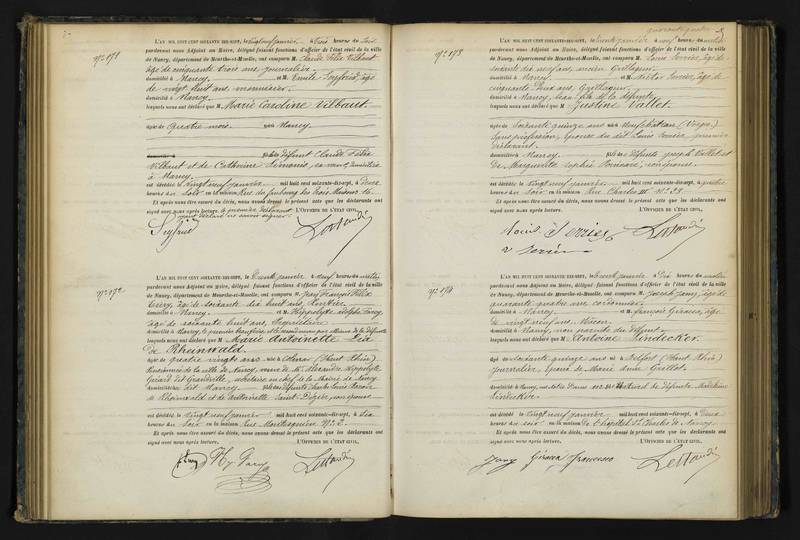 N° 171
L'AN MIL HUIT CENT SOIXANTE-DIX-SEPT, le vingt neuf janvier, à trois heures du soir
pardevant nous Adjoint au Maire, délégué faisant fonctions d'officier de l'état civil de la ville
de Nancy, département de Meurthe-et-Moselle, ont comparu M. Claude Félix Vilbaut
âgé de cinquante trois ans, journalier
domicilié à Nancy et M. Emile Seyfried, âgé
de vingt huit ans, menuisier
domicilié à Nancy
lesquels nous ont déclaré que M Marie Caroline Vilbaut
âgée de quatre mois né à Nancy
domicilié à fille de défunt Claude Félix
Vilbaut et de Catherine Simonis, sa veuve, domiciliée
à Nancy
est décédée le vingt neuf janvier mil huit cent soixante-dix-sept, à deux
heures du soir en la maison Rue du faubourg des Trois Maisons 16
Et après nous être assuré du décès, nous avons dressé le présent acte que les déclarants ont
signé avec nous après lecture, le premier déclarant
ayant déclaré ne savoir signer. L'OFFICIER DE L'ÉTAT CIVIL,
N° 172
L'AN MIL HUIT CENT SOIXANTE-DIX-SEPT, le trente janvier à neuf heures du matin
pardevant nous Adjoint au Maire, délégué faisant fonctions d'officier de l'état civil de la ville
de Nancy, département de Meurthe-et-Moselle, ont comparu M. Jean François Félix
âgé de soixante dix huit ans, rentier
domicilié à Nancy et M. Hippolyte Adolphe
âgé de soixante huit ans, Propriétaire
domicilié à Nancy, le premier
lesquels nous ont déclaré que M Marie Antoinette Lia
de Rheinwald
âgée de quatre vingts ans née à Colmar (Haut Rhin)
Pensionnée de la ville de Nancy, veuve de M. Alexandre Hippolyte
Gérard dit Grandville, secrétaire en chef de la Mairie de Nancy
domiciliée à dit Nancy fille de défunts Charles Louis
de Rheinwald et de Antoinette Saint-Dizier, conjoints
est décédée le vingt neuf janvier mil huit cent soixante-dix-sept, à six
heures du soir en la maison Rue Montesquieu N° 2
Et après nous être assuré du décès, nous avons dressé le présent acte que les déclarants ont
signé avec nous après lecture. L'OFFICIER DE L'ÉTAT CIVIL,
quarante quatre
N° 173
L'AN MIL HUIT CENT SOIXANTE-DIX-SEPT, le trente janvier à neuf heures du matin
pardevant nous Adjoint au Maire, délégué faisant fonctions d'officier de l'état civil de la ville
de Nancy, département de Meurthe-et-Moselle, ont comparu M. Louis
soixante dix neuf ans, ancien
domicilié à Nancy et M. âgé de
cinquante deux ans,
domicilié à Nancy, beau fils de la défunte
lesquels nous ont déclaré que M Justine Vallet
âgée de soixante quinze ans née à Neufchâteau (Vosges)
sans profession, épouse du dit Louis premier
déclarant
domiciliée à Nancy fille de défunts Joseph Vallet et
de Marguerite Sophie conjoints
est décédée le vingt neuf janvier mil huit cent soixante-dix-sept, à quatre
heures du soir en la maison Rue Charles III N° 28
Et après nous être assuré du décès, nous avons dressé le présent acte que les déclarants ont
signé avec nous après lecture. L'OFFICIER DE L'ÉTAT CIVIL,
N° 174
L'AN MIL HUIT CENT SOIXANTE-DIX-SEPT, le trente janvier à dix heures du matin
pardevant nous Adjoint au Maire, délégué faisant fonctions d'officier de l'état civil de la ville
de Nancy, département de Meurthe-et-Moselle, ont comparu M. Joseph Jany, âgé de
quarante quatre ans, cordonnier
domicilié à Nancy et M. François Giracca, âgé
de vingt neuf ans,
domicilié à Nancy, non parents du défunt
lesquels nous ont déclaré que M Antoine Lindecker
âgé de soixante quinze ans né à Belfort (Haut Rhin)
journalier, époux de Marie Anne Grillot
domicilié à Nancy, fils de défunte Madeleine
Lindecker
est décédé le vingt neuf janvier mil huit cent soixante-dix-sept, à deux
heures du soir en la maison de l'hôpital St Charles de Nancy
Et après nous être assuré du décès, nous avons dressé le présent acte que les déclarants ont
signé avec nous après lecture. L'OFFICIER DE L'ÉTAT CIVIL,
Jany Giracca Francesco